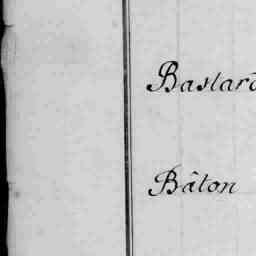 Bastard
Bâton